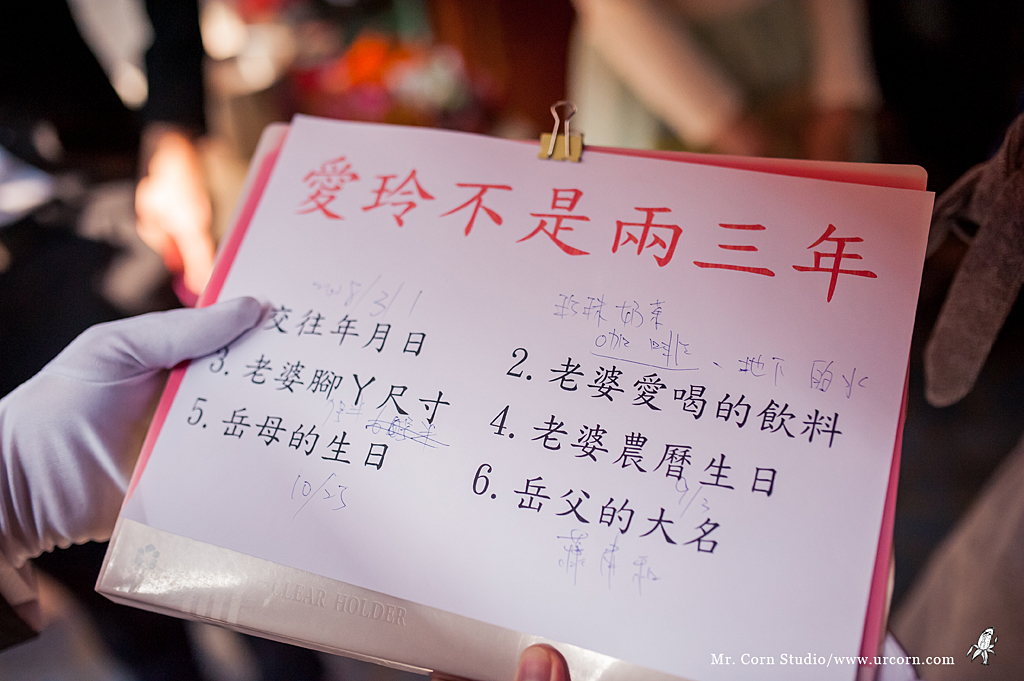 愛玲不是兩三年
8/3/1
交往年月日
珍珠奶茶
咖啡、地下的水
2. 老婆愛喝的飲料
3. 老婆腳丫尺寸
4. 老婆農曆生日
5. 岳母的生日
9/3
6. 岳父的大名
10/23
CLEAR HOLDER
Mr. Corn Studio/www.urcorn.com